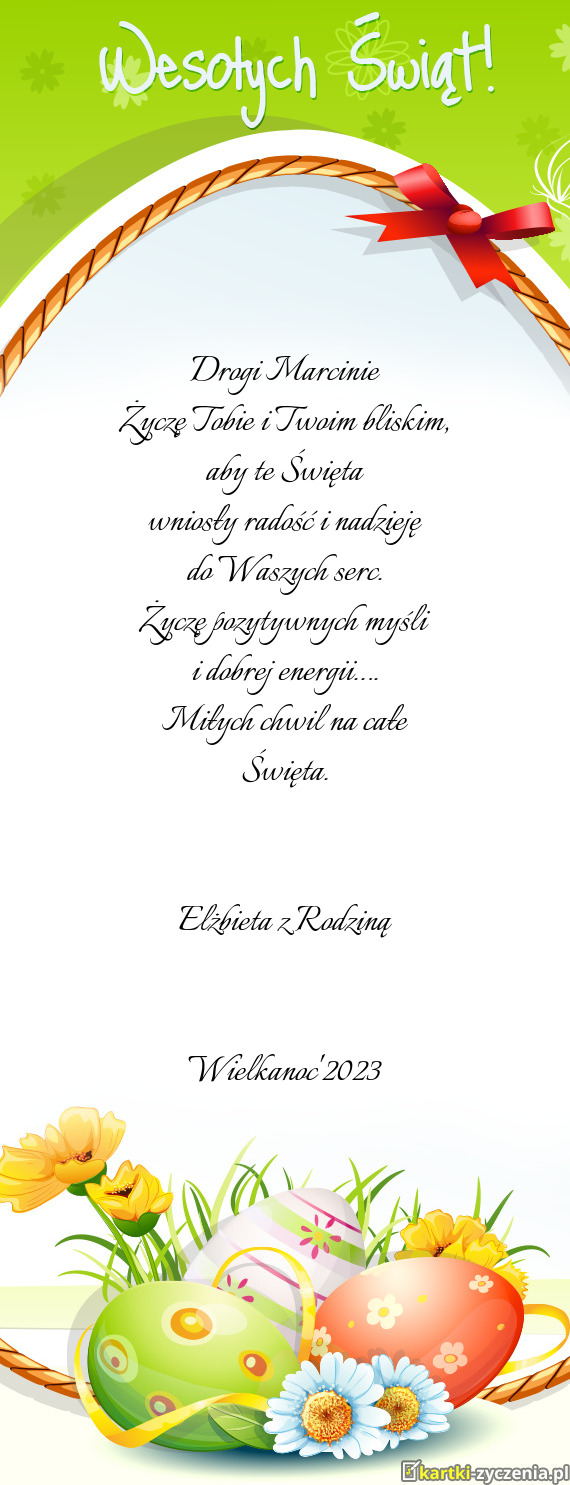 Wesołych Świąt!
Drogi Marcinie
Życzę Tobie i Twoim bliskim,
aby te Święta
wniosły radość i nadzieję
do Waszych serc.
Życzę pozytywnych myśli
i dobrej energii....
Miłych chwil na całe
Święta.
Elżbieta z Rodziną
Wielkanoc'2023
kartki-zyczenia.pl